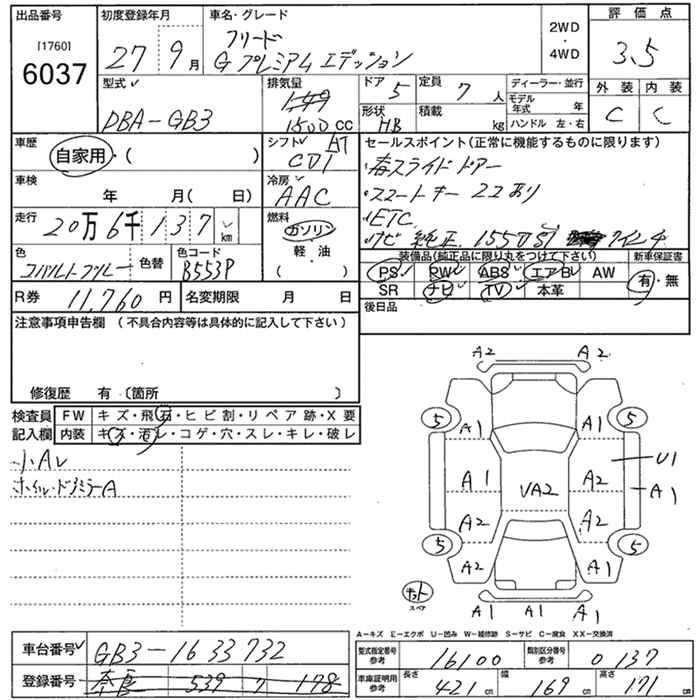 出品番号 初度登録年月 車名・グレード 評価点
[1760] 6037
27年9月
フリード
Gプレミアムエディション
2WD
・
4WD
3.5
外装 内装
C C
型式 排気量 ドア 5 定員 7人 ディーラー・並行
DBA-GB3
1500cc
形状 HB 積載 kg
モデル年式 年
ハンドル 左・右
車歴 シフト AT セールスポイント(正常に機能するものに限ります)
自家用・( )
スライドドアー
車検 年 月( 日) 冷房 AAC
スマートキー 2コあり
走行 20万6千137km 燃料 ガソリン・軽・油( )
ETC
ナビ 純正
色 色替 色コード B553P
装備品(純正品に限り丸をつけて下さい) 新車保証書
PS PW ABS エアB AW
SR ナビ TV 本革
有・無
R券 11,760円 名変期限 月 日 後日品
注意事項申告欄 (不具合内容等は具体的に記入して下さい)
修復歴 有(箇所 )
検査員記入欄 FW キズ・飛石・ヒビ割・リペア跡・X要
内装 キズ・汚レ・コゲ・穴・スレ・キレ・破レ
小A
ホイル・ドアミラーA
A2 A2
5 5
A1 A1
U1
A1 A2
A1
VA2
A2 A2
5 5
A2 A1
スペア
A1 A1 A1
A-キズ E-エクボ U-凹み W-補修跡 S-サビ C-腐食 XX-交換済
車台番号 GB3-1633732
登録番号 奈良 539 178
型式指定番号 参考 16100 類別区分番号 参考 0137
車庫証明用 参考 長さ 421cm 幅 169cm 高さ 171cm